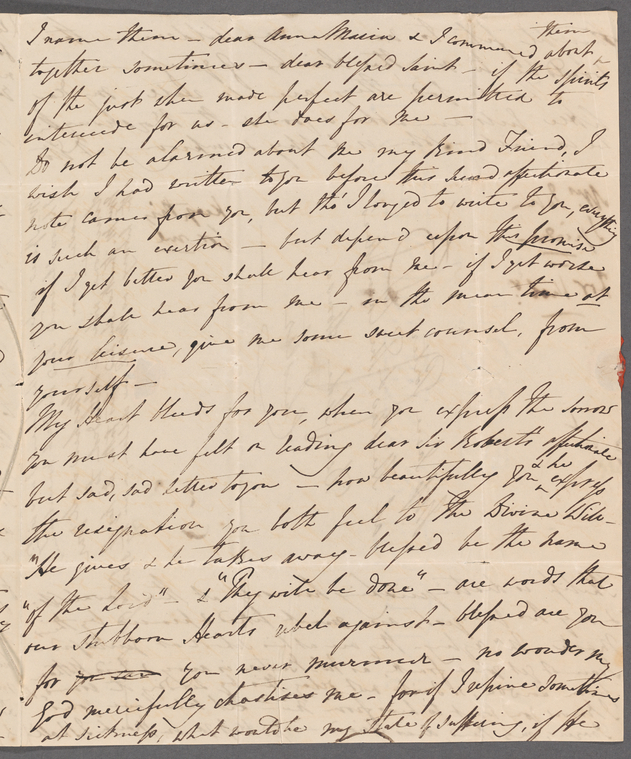 I name them - dear Anna Maria & I commun'd about them
together sometimes - dear blessed Saint - if the spirits
of the just when made perfect are permitted to
intercede for us - she does for me -
Do not be alarmed about me my kind Friend, I
wish I had written to you before this second affectionate
note came from you, but tho' I longed to write to you, everything
is such an exertion - but depend upon this promise
if I get better you shall hear from me - if I get worse
you shall hear from me - in the mean time at
your leisure, give me some sweet counsel, from
yourself -
My Heart bleeds for you, when you express the sorrow
you must have felt on reading dear Sir Robert's affectionate
but sad, sad letter to you - how beautifully you & he express
the resignation you both feel to the Divine Will -
"He gives & he takes away - blessed be the name
"of the Lord" - & "Thy will be done" - are words that
our stubborn Hearts rebel against - blessed are you
for you never murmur - no wonder my
God mercifully chastises me - for if I repine sometimes
at sickness, what would be my state of suffering, if He